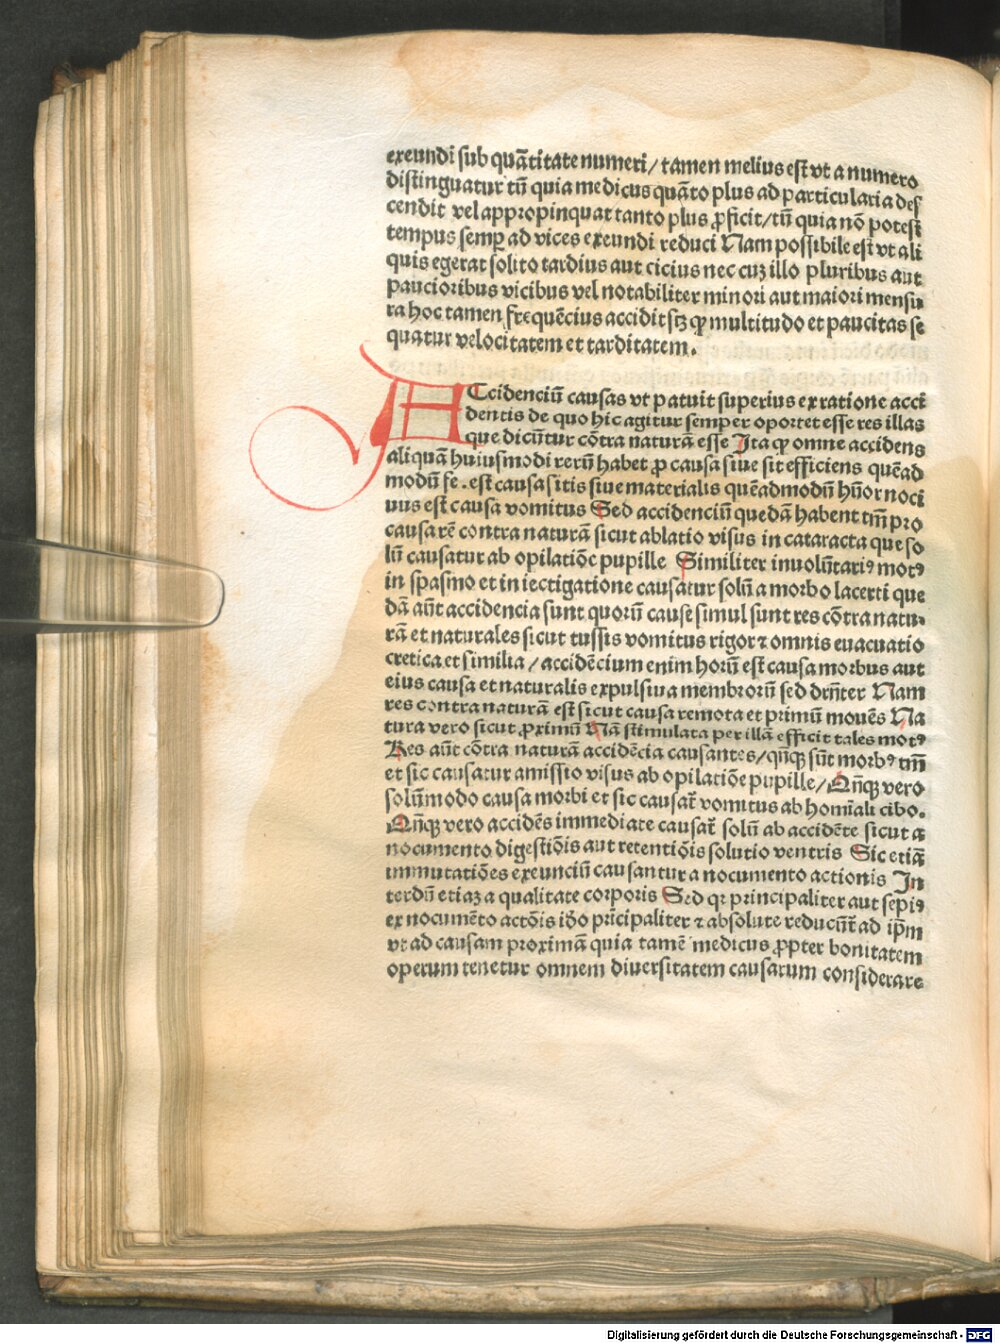 exeundi sub quãtitate numeri / tamen melius est vt a numero
distinguatur tũ quia medicus quãto plus ad particularia des
cendit vel appropinquat tanto plus ꝓficit / tũ quia nõ potest
tempus semꝑ ad vices exeundi reduci Nam possibile est vt ali
quis egerat solito tardius aut cicius nec cuʒ illo pluribus aut
paucioribus vicibus vel notabiliter minori aut maiori mensu
ra hoc tamen frequẽcius accidit sʒ ꝙ multitudo et paucitas se
quatur velocitatem et tarditatem.
ACcidenciũ causas vt patuit superius ex ratione acci
dentis de quo hic agitur semper oportet esse res illas
que dicũtur cõtra naturã esse Ita ꝙ omne accidens
aliquãm huiusmodi rerũ habet ꝓ causa siue sit efficiens quẽad
modũ fe. est causa sitis siue materialis quẽadmodũ hũor noci
uus est causa vomitus Sed accidenciũ quedã habent tm̃ pro
causa rẽ contra naturã sicut ablatio visus in cataracta que so
lũ causatur ab opilatiõe pupille Similiter inuolũtariꝰ motꝰ
in spasmo et in iectigatione causatur solũ a morbo lacerti que
dã aũt accidencia sunt quorũ cause simul sunt res cõtra natu-
rã et naturales sicut tussis vomitus rigor ⁊ omnis euacuatio
cretica et similia / accidẽcium enim horũ est causa morbus aut
eius causa et naturalis expulsiua membrorũ sed drñter Nam
res contra naturã est sicut causa remota et primũ mouẽs Na
tura vero sicut ꝓximũ Nã stimulata per illã efficit tales motꝰ
Res aũt cõtra naturã accidẽcia causantes / qñqꝫ sũt morbꝰ tm̃
et sic causatur amissio visus ab opilatiõe pupille / Qñqꝫ vero
solũmodo causa morbi et sic causat̃ vomitus ab homĩali cibo.
Qñqꝫ vero accidẽs immediate causat̃ solũ ab accidẽte sicut a
nocumento digestiõis aut retentiõis solutio ventris Sic etiã
immutatiões exeunciũ causantur a nocumento actionis In
terdũ etiaʒ a qualitate corporis Sed qꝛ principaliter aut sepiꝰ
ex nocumẽto actõis iõo prĩcipaliter ⁊ absolute reducũt̃ ad ip̃m
vt ad causam proximã quia tamẽ medicus ꝓpter bonitatem
operum tenetur omnem diuersitatem causarum considerare
Digitalisierung gefördert durch die Deutsche Forschungsgemeinschaft - DFG